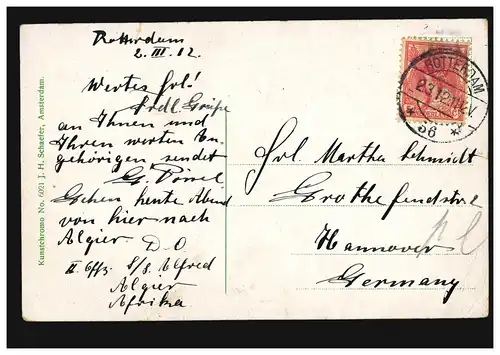 Rotterdam
2. III. 12.
Wertes Frl!
Frdl. Grüße
an Ihnen und
Ihren werten An-
gehörigen, sendet
G.
Gehen heute Abend
von hier nach
Algier
D O
II. Offz. S/S. Alfred
Algier
Afrika
ROTTERDAM
* 56 *
Frl. Martha Schmidt
Grothefendstr 2
Hannover
Germany
Kunstchromo No. 6021 J. H. Schaefer, Amsterdam.